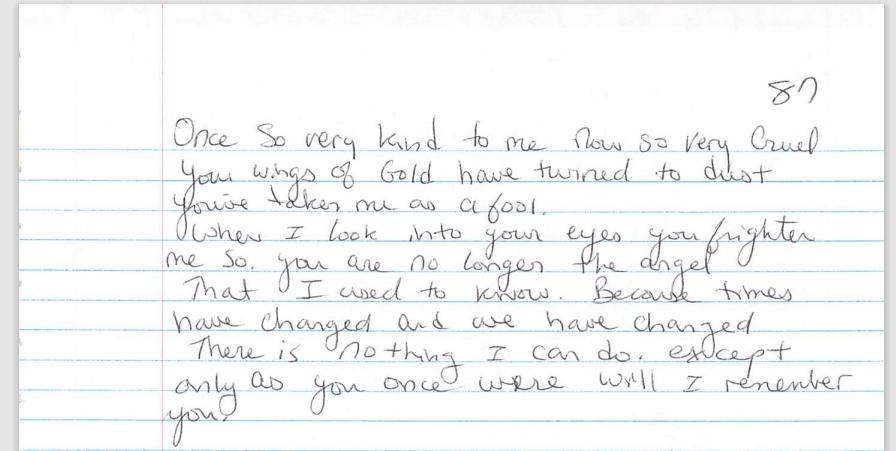 87
Once So very kind to me Now so very Cruel
Your wings of Gold have turned to dust
you've taken me as a fool.
When I look into your eyes you frighten
me so. you are no longer the angel
That I used to know. Because times
have changed and we have changed
There is nothing I can do. except
only as you once were will I remember
you.